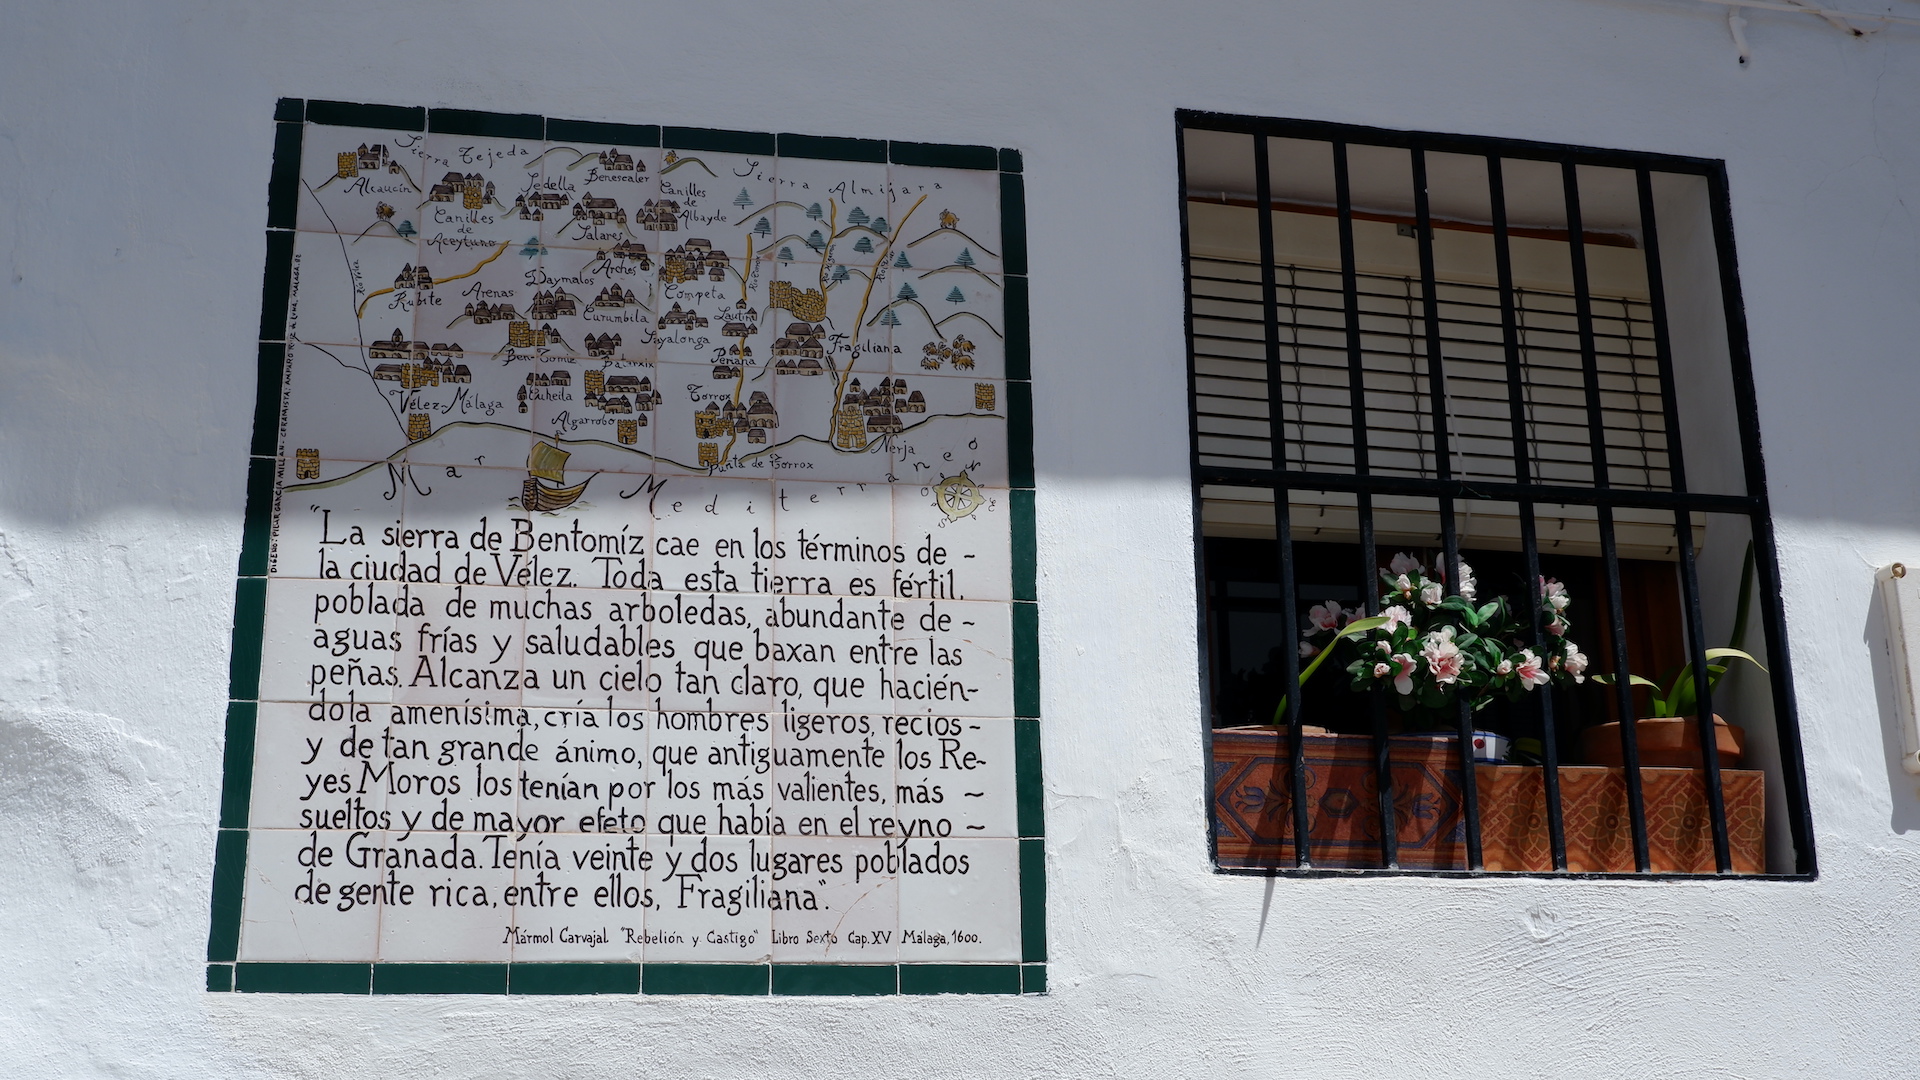 Sierra Tejeda
Sierra Almijara
Alcaucín
Sedella
Benescaler
Canilles
de
Albayde
Canilles
de
Aceytuno
Salares
Arches
Río Vélez
Rubite
Arenas
Daymalos
Competa
Curumbila
Lautín
Sayalonga
Fragiliana
Ben-Tomiz
Batarxix
Periana
Vélez-Málaga
Algarrobo
Torrox
Nerja
Punta de Torrox
Mar Mediterraneo
DISEÑO: PILAR GARCIA MILLAN - CERAMISTA: AMPARO RUIZ de LUNA, MALAGA-82
"La sierra de Bentomíz cae en los términos de -
la ciudad de Vélez. Toda esta tierra es fértil,
poblada de muchas arboledas, abundante de -
aguas frías y saludables que baxan entre las
peñas. Alcanza un cielo tan claro, que hacién-
dola amenísima, cría los hombres ligeros, recios -
y de tan grande ánimo, que antiguamente los Re-
yes Moros los tenían por los más valientes, más ~
sueltos y de mayor efeto que había en el reyno ~
de Granada. Tenía veinte y dos lugares poblados
de gente rica, entre ellos, Fragiliana".
Mármol Carvajal "Rebelión y Castigo" Libro Sexto Cap. XV Málaga, 1600.